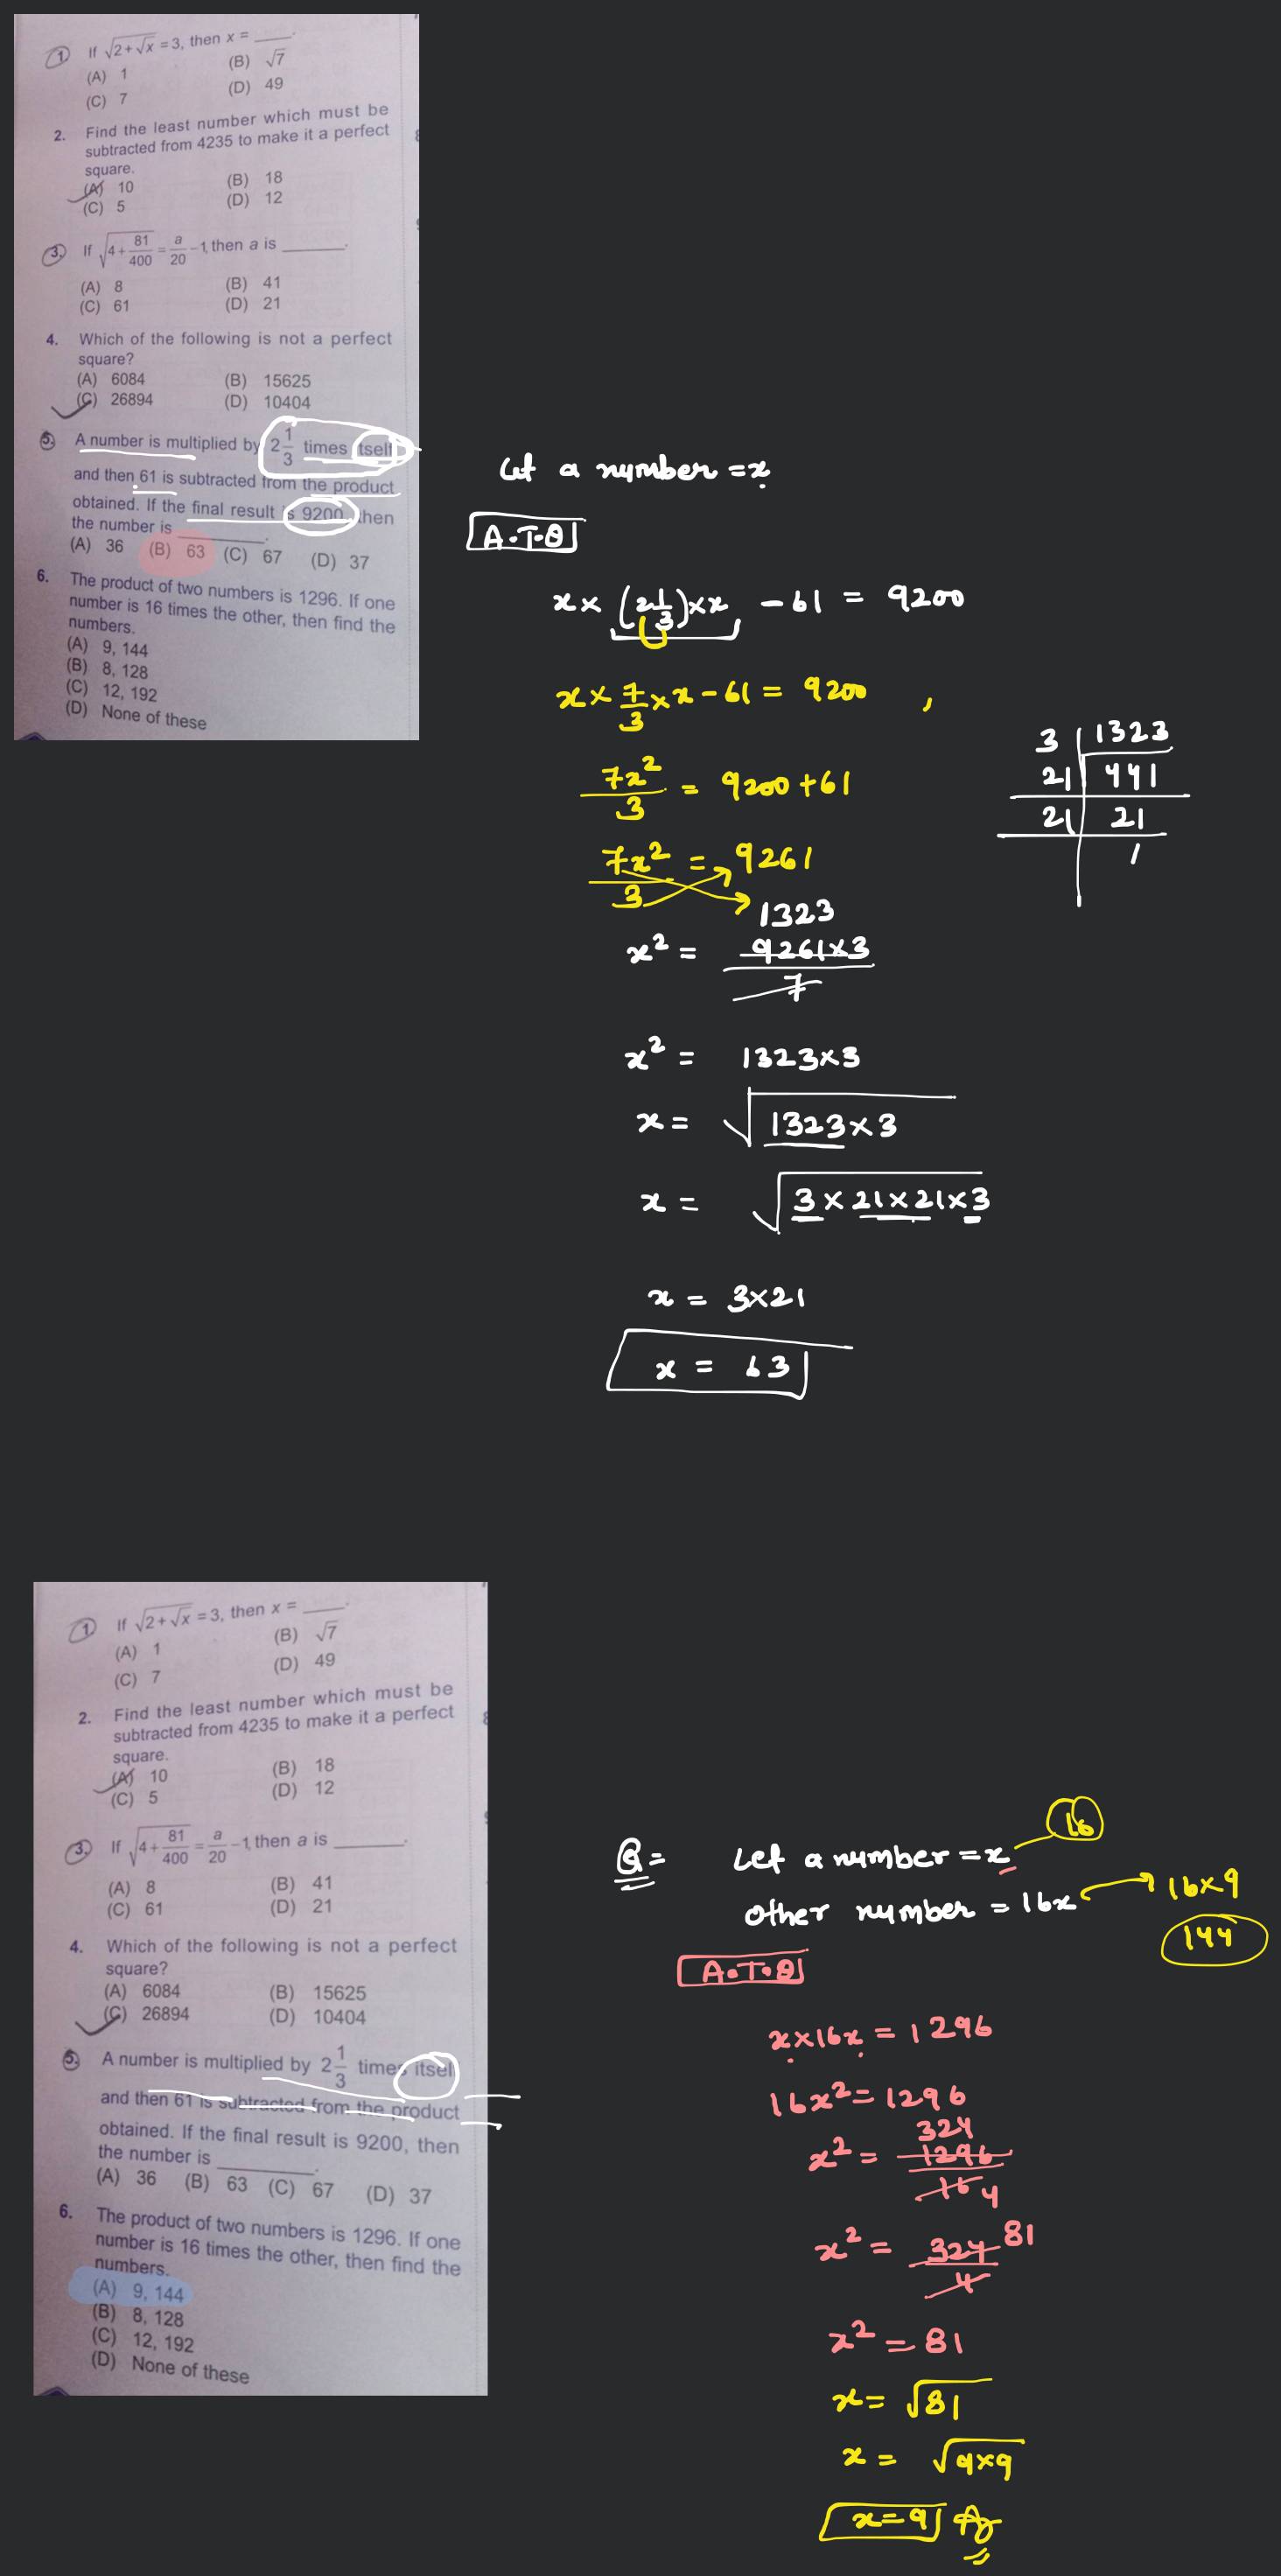 1. If √(2+√x) = 3, then x = ____.
(A) 1 (B) √7
(C) 7 (D) 49
2. Find the least number which must be
subtracted from 4235 to make it a perfect
square.
(A) 10 (B) 18
(C) 5 (D) 12
3. If √(4+81/400) = a/20 −1, then a is ______.
(A) 8 (B) 41
(C) 61 (D) 21
4. Which of the following is not a perfect
square?
(A) 6084 (B) 15625
(C) 26894 (D) 10404
5. A number is multiplied by 2 1/3 times itself
and then 61 is subtracted from the product
obtained. If the final result is 9200, then
the number is ______.
(A) 36 (B) 63 (C) 67 (D) 37
6. The product of two numbers is 1296. If one
number is 16 times the other, then find the
numbers.
(A) 9, 144
(B) 8, 128
(C) 12, 192
(D) None of these
Let a number = x
A.T.Q
x × (2 1/3) × x − 61 = 9200
x × 7/3 × x − 61 = 9200 ,
7x²/3 = 9200 + 61
7x²/3 = 9261
1323
x² = 9261×3/7
x² = 1323×3
x = √(1323×3)
x = √(3×21×21×3)
x = 3×21
x = 63
3 | 1323
21 | 441
21 | 21
1
1. If √(2+√x) = 3, then x = ____.
(A) 1 (B) √7
(C) 7 (D) 49
2. Find the least number which must be
subtracted from 4235 to make it a perfect
square.
(A) 10 (B) 18
(C) 5 (D) 12
3. If √(4+81/400) = a/20 −1, then a is ______.
(A) 8 (B) 41
(C) 61 (D) 21
4. Which of the following is not a perfect
square?
(A) 6084 (B) 15625
(C) 26894 (D) 10404
5. A number is multiplied by 2 1/3 times itself
and then 61 is subtracted from the product
obtained. If the final result is 9200, then
the number is ______.
(A) 36 (B) 63 (C) 67 (D) 37
6. The product of two numbers is 1296. If one
number is 16 times the other, then find the
numbers.
(A) 9, 144
(B) 8, 128
(C) 12, 192
(D) None of these
Q = Let a number = x 16
other number = 16x 16×9
144
A.T.Q
x×16x = 1296
16x² = 1296
324
x² = 1296/16 4
x² = 324/4 81
x² = 81
x = √81
x = √9×9
x = 9